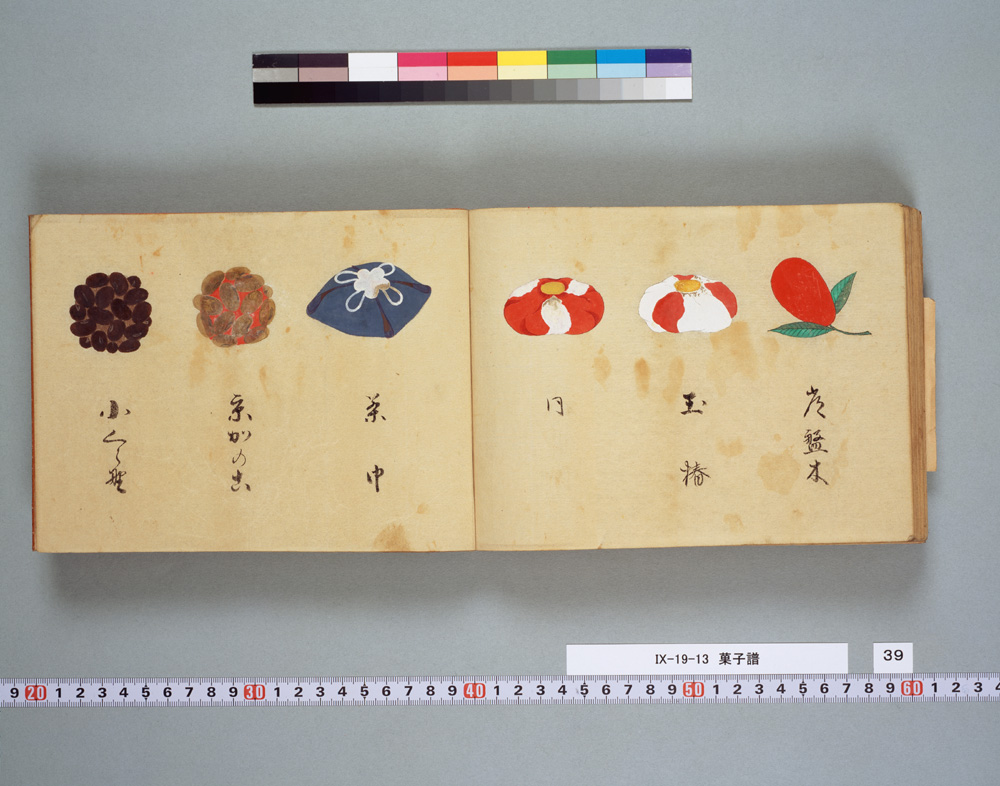 常盤木
玉椿
同
茶巾
京かのこ
小くら野
IX-19-13 菓子譜
39
9 20 1 2 3 4 5 6 7 8 9 30 1 2 3 4 5 6 7 8 9 40 1 2 3 4 5 6 7 8 9 50 1 2 3 4 5 6 7 8 9 60 1 2 3 4